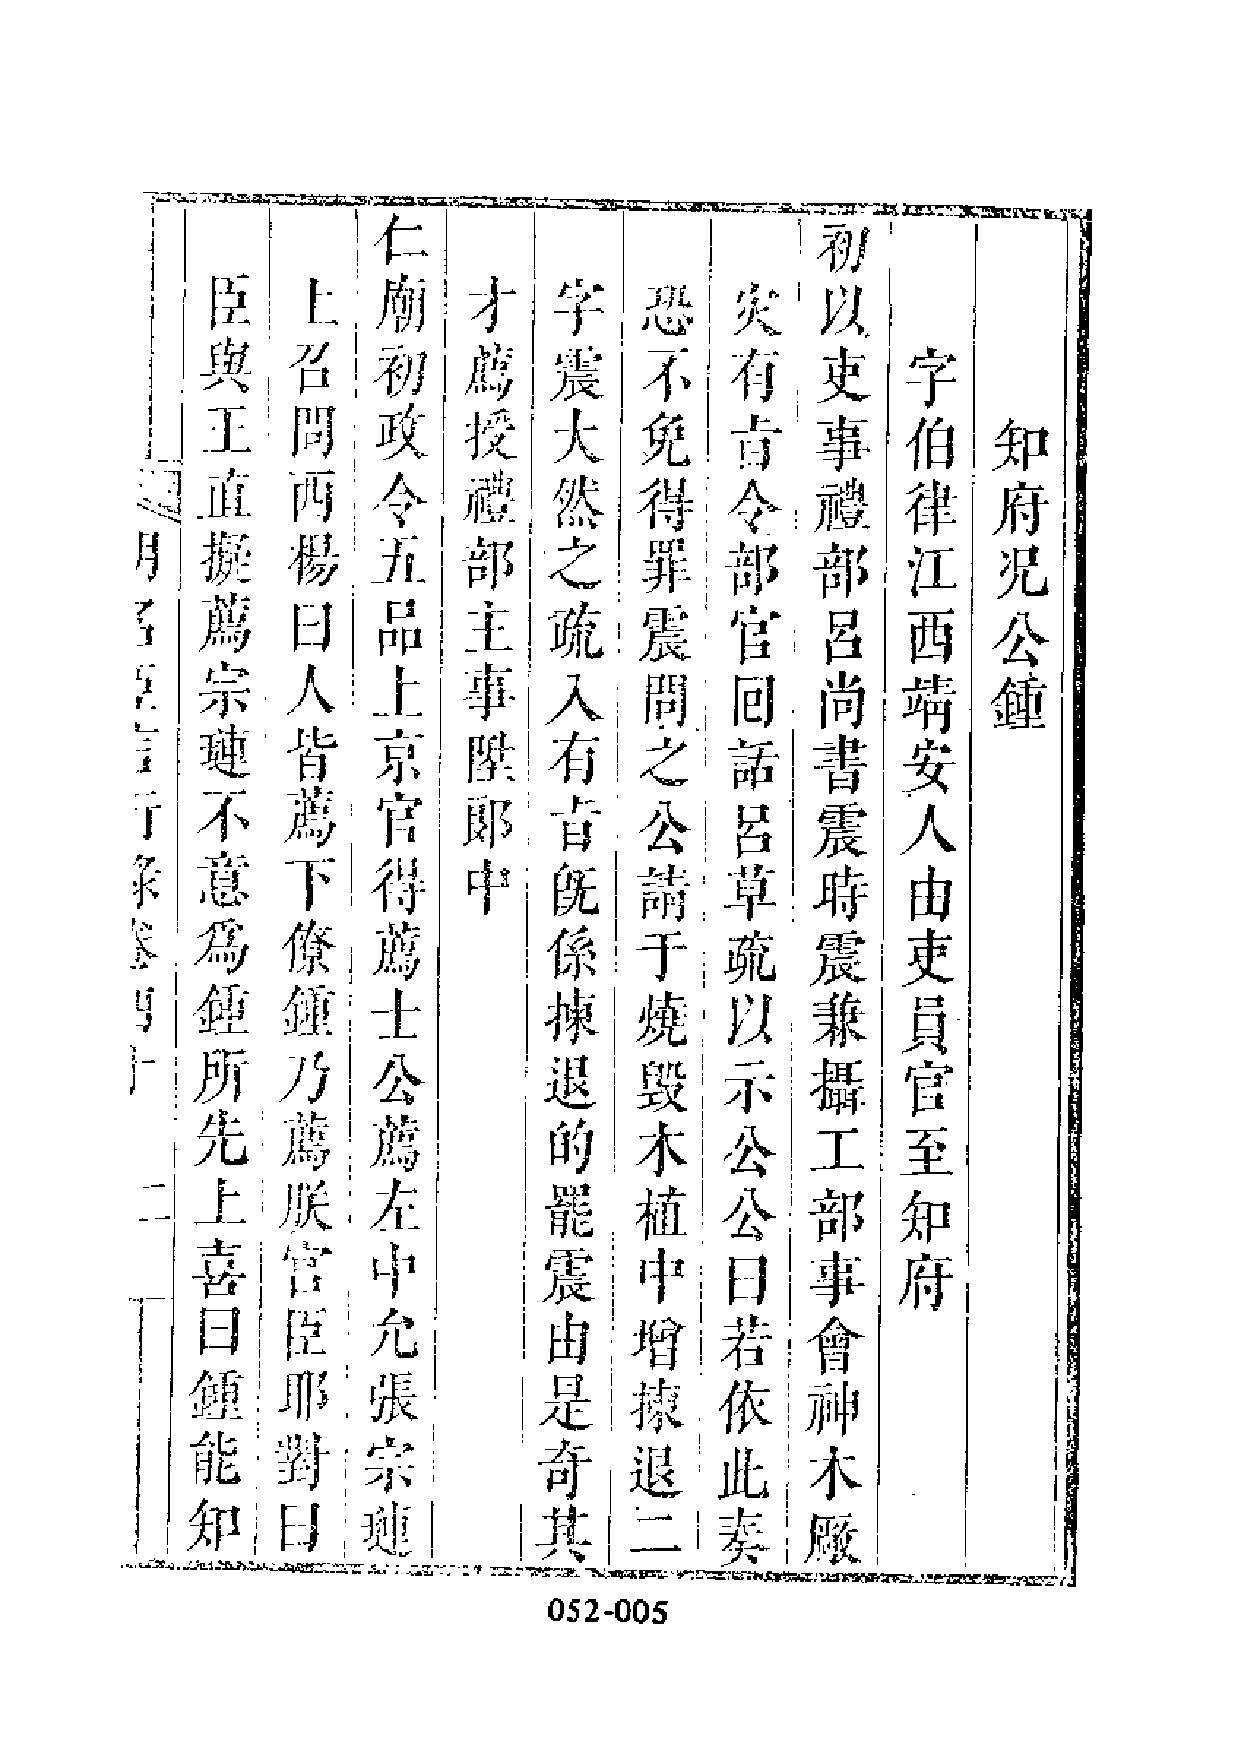 知府况公鍾
字伯律江西靖安人由吏員官至知府
初以吏事禮部呂尚書震時震兼攝工部事會神木厰
灾有㫖令部官回話呂草疏以示公公曰若依此奏
恐不免得罪震問之公請于燒毀木植中增揀退二
字震大然之疏入有㫖旣係揀退的罷震由是奇其
才薦授禮部主事陞郎中
仁廟初政令五品上京官得薦士公薦左中允張宗璉
上召問西楊曰人皆薦下僚鍾乃薦朕宫臣耶對曰
臣與王直擬薦宗璉不意爲鍾所先上喜曰鍾能知
明名臣言行錄卷四十 二
052-005